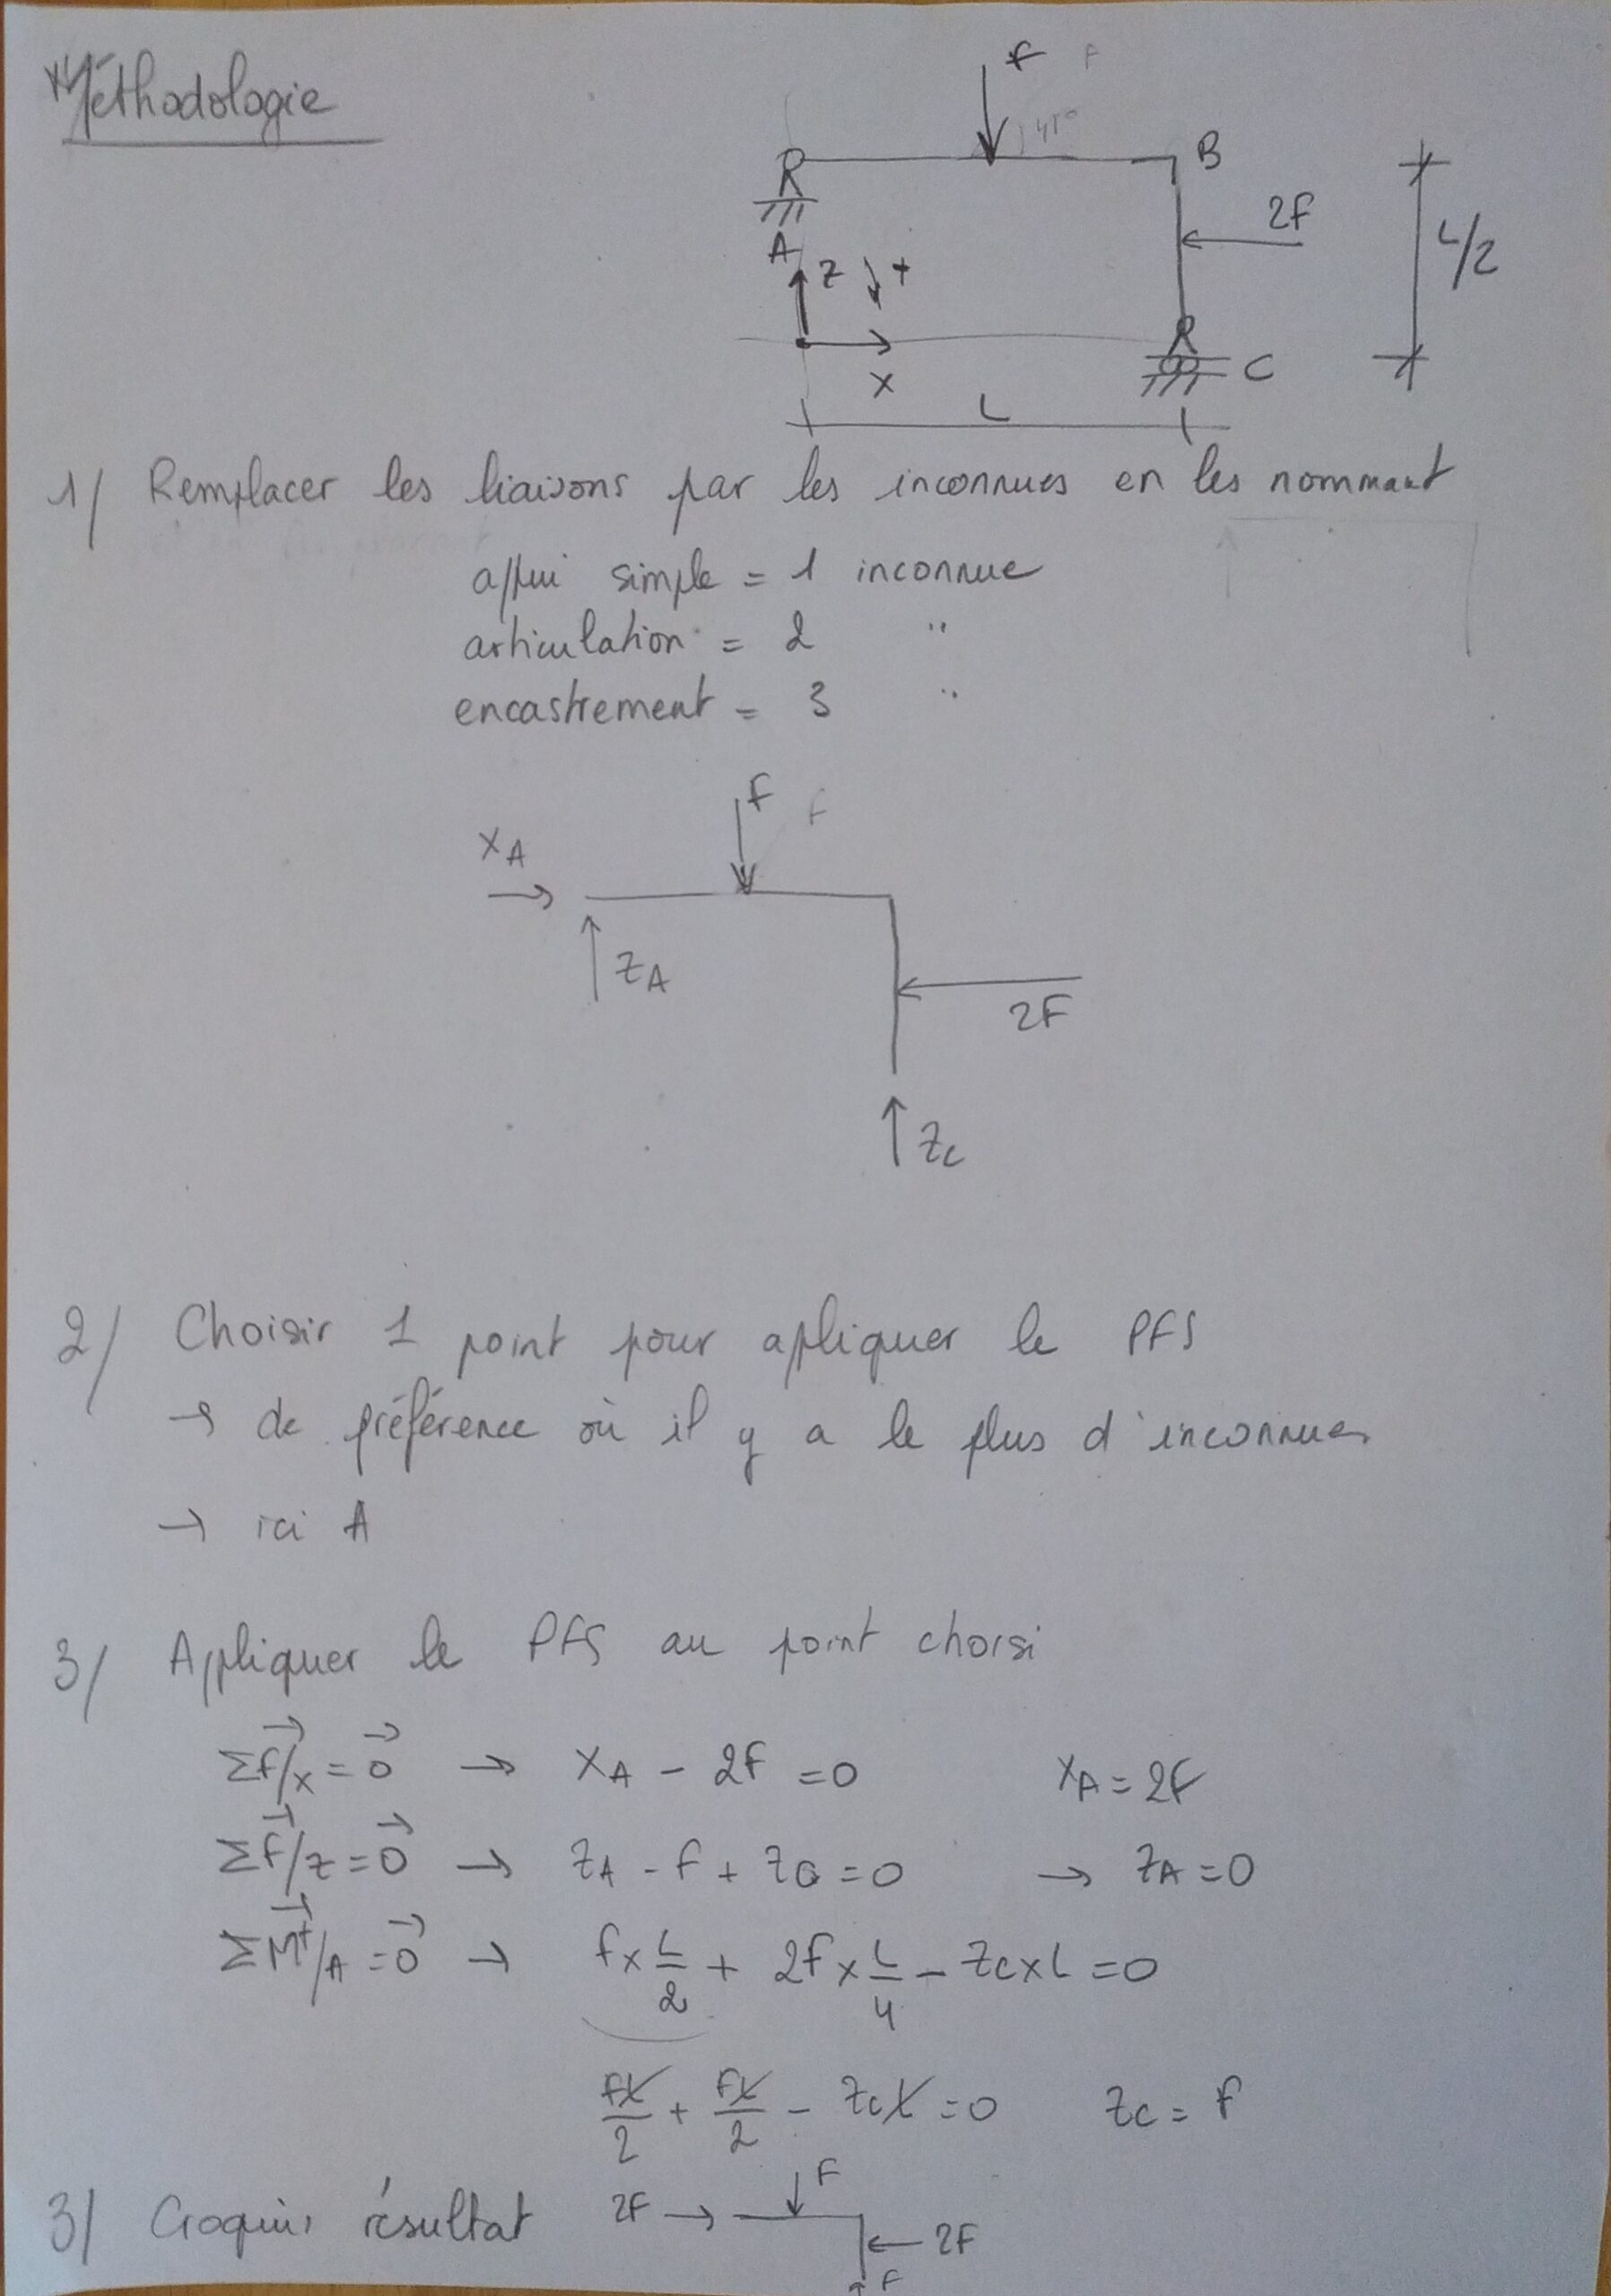 Méthodologie
F F
45°
B
2F
L/2
A
Z +
X
C
L
1/ Remplacer les liaisons par les inconnues en les nommant
appui simple = 1 inconnue
articulation = 2 "
encastrement = 3 "
F F
XA
ZA
2F
Zc
2/ Choisir 1 point pour apliquer le PFS
→ de préférence où il y a le plus d'inconnues
→ ici A
3/ Appliquer le PFS au point choisi
ΣF/x = 0 → XA - 2F = 0 XA = 2F
ΣF/z = 0 → ZA - F + Zc = 0 → ZA = 0
ΣM+/A = 0 → F x L/2 + 2F x L/4 - Zc x L = 0
FL/2 + FL/2 - ZcL = 0 Zc = F
3/ Croquis résultat 2F → F
← 2F
↑ F